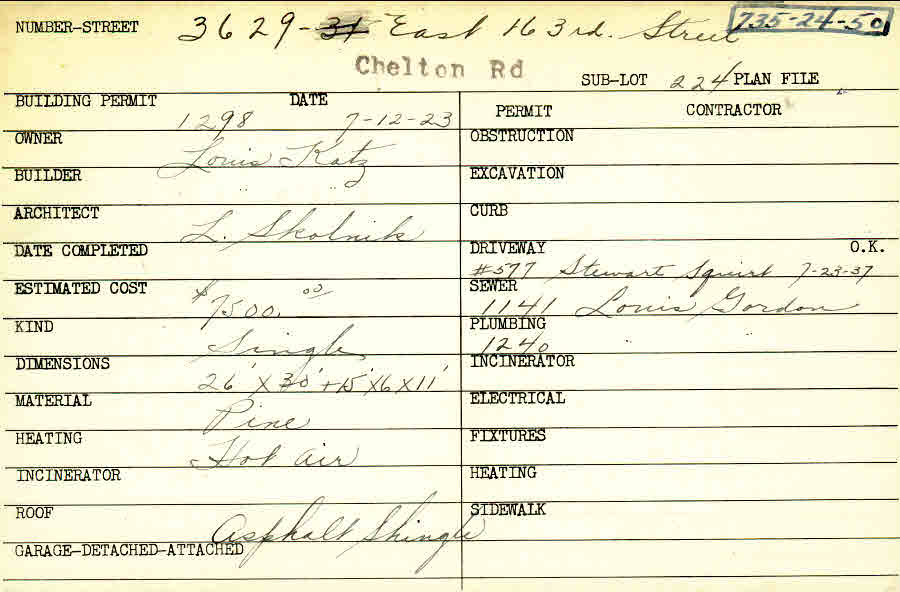 NUMBER-STREET 3629-31 East 163rd. Street 735-24-50
Chelton Rd
SUB-LOT 224 PLAN FILE
BUILDING PERMIT 1298 DATE 7-12-23
OWNER Louis Katz
BUILDER " "
ARCHITECT L. Skolnik
DATE COMPLETED
ESTIMATED COST $7500.00
KIND Single
DIMENSIONS 26' X 30' + 15' X 16 X 11'
MATERIAL Pine
HEATING Hot air
INCINERATOR
ROOF Asphalt Shingle
GARAGE-DETACHED-ATTACHED
PERMIT CONTRACTOR
OBSTRUCTION
EXCAVATION
CURB
DRIVEWAY O.K.
#577 Stewart Squirt 7-23-37
SEWER
1141 Louis Gordon
PLUMBING " "
1240
INCINERATOR
ELECTRICAL
FIXTURES
HEATING
SIDEWALK